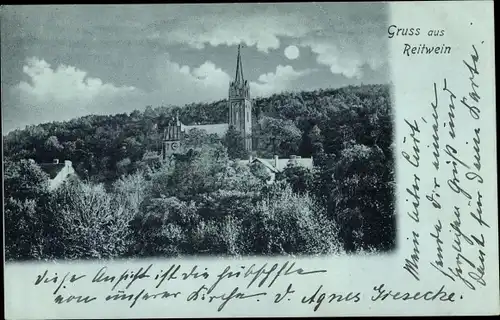 Gruss aus
Reitwein
diese Ansicht ist die hübschste
von unserer Kirche. d. Agnes Gresecke.
Mein liebes Curt
sende Dir einen
herzigen Gruß und
Dank für Deine Karte